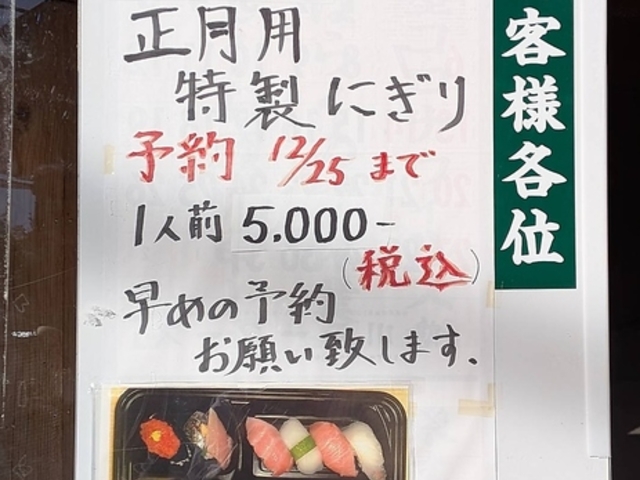 客様各位
正月用
特製にぎり
予約 12/25 まで
1人前 5,000-
(税込)
早めの予約
お願い致します.